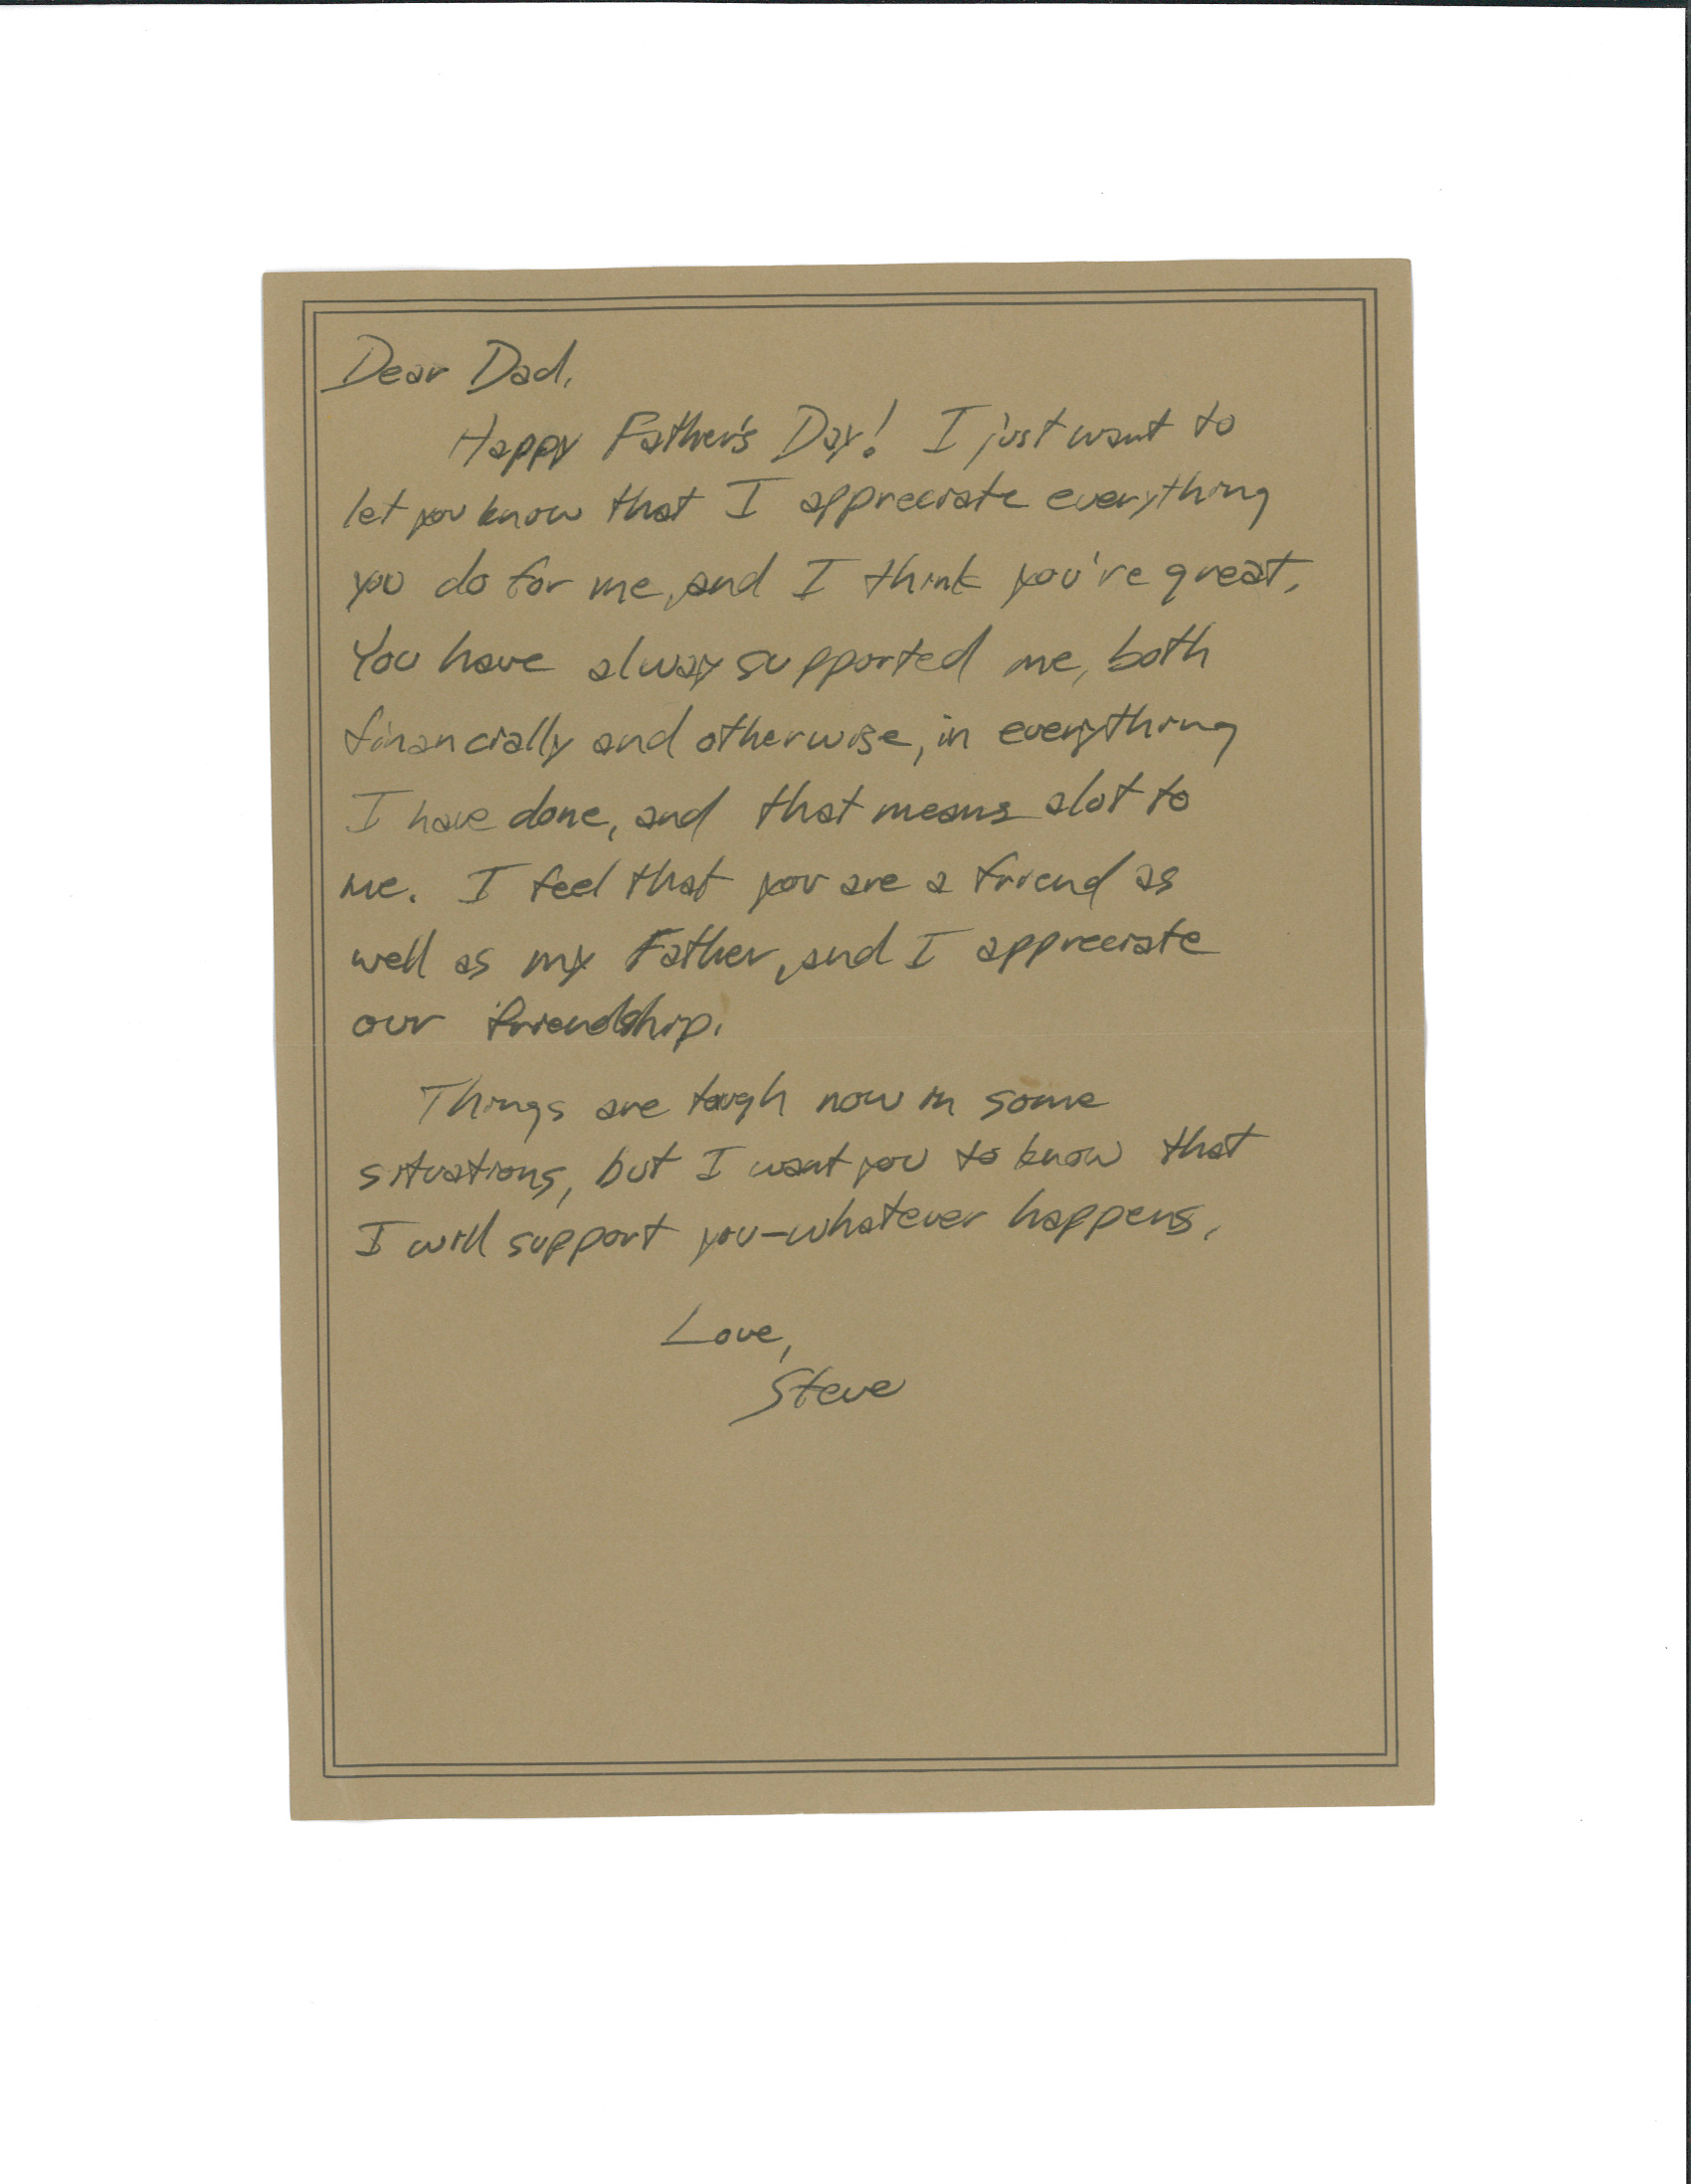 Dear Dad,
Happy Father's Day! I just want to
let you know that I appreciate everything
you do for me, and I think you're great.
You have alway supported me, both
financially and otherwise, in everything
I have done, and that means alot to
me. I feel that you are a friend as
well as my Father, and I appreciate
our friendship.
Things are tough now in some
situations, but I want you to know that
I will support you—whatever happens.
Love,
Steve